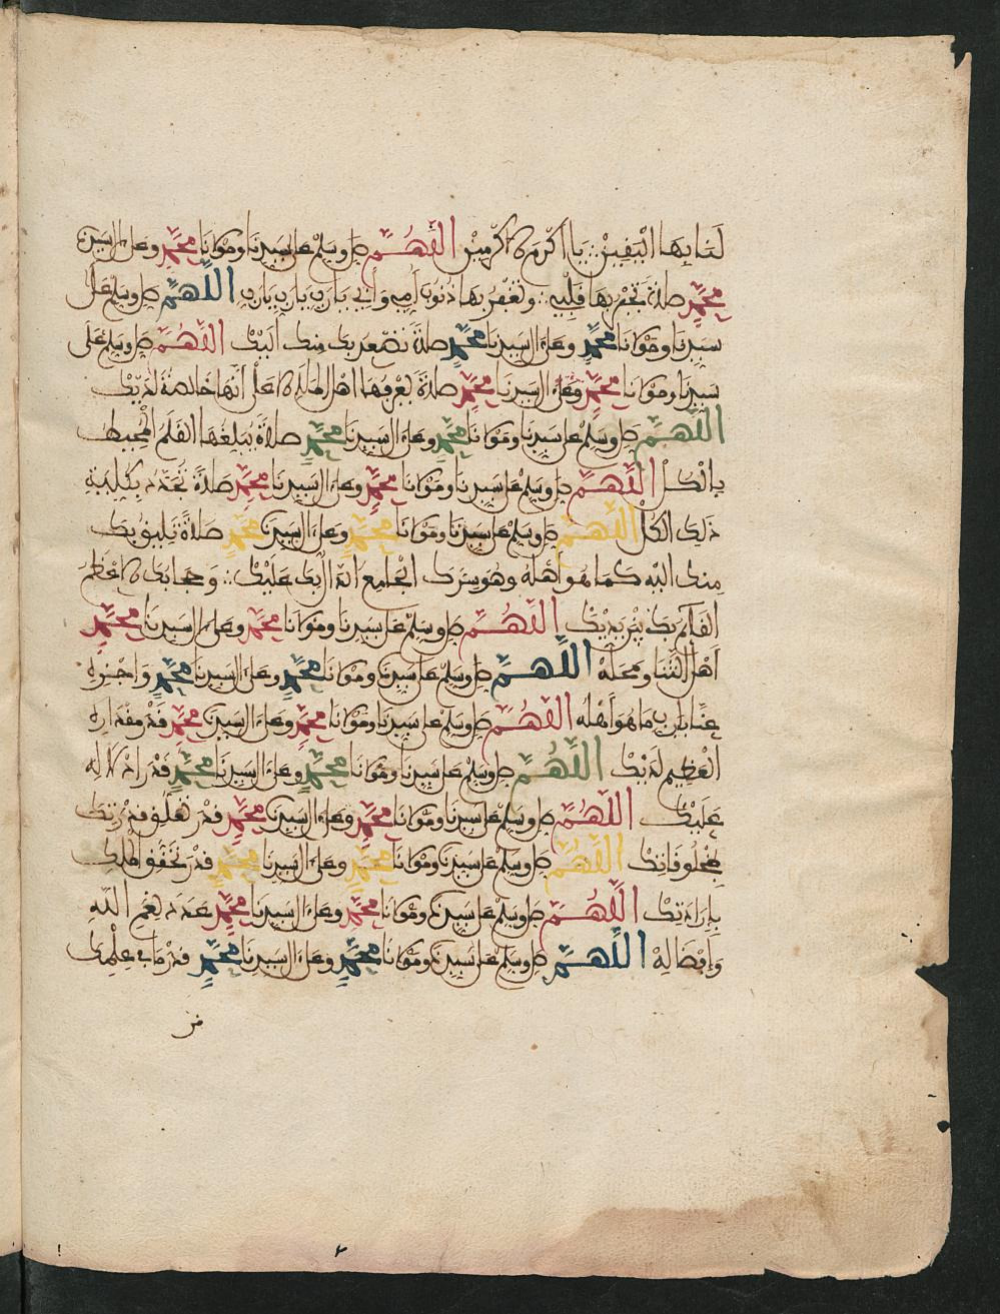 لنا بها اليقين ∴ يا أكرم الاكرمين اللهم صل وسلم على سيدنا ومولانا محمد وعلى ال سيدنا
محمد صلاة تجبر بها قلبي ∴ وتغفر بها ذنوب امي وابي يارب يارب يارب اللهم صل وسلم على
سيدنا ومولانا محمد وعلى ال سيدنا محمد صلاة تصعد بك منك اليك اللهم صل وسلم على
سيدنا ومولانا محمد وعلى ال سيدنا محمد صلاة يعرفها اهل الملإ الاعلى أنها خالصة لديك
اللهم صل وسلم على سيدنا ومولانا محمد وعلى ال سيدنا محمد صلاة يبلغها القلم المحيط
بالكل اللهم صل وسلم على سيدنا ومولانا محمد وعلى ال سيدنا محمد صلاة تحمد بكلية
ذلك الكل اللهم صل وسلم على سيدنا ومولانا محمد وعلى ال سيدنا محمد صلاة تليق بك
منك اليه كما هو أهله وهو سرك الجامع الدال بك عليك ∴ وحجابك الاعظم
القائم بك بين يديك اللهم صل وسلم على سيدنا ومولانا محمد وعلى ال سيدنا محمد
أهل الثنا ومحله اللهم صل وسلم على سيدنا ومولانا محمد وعلى ال سيدنا محمد واجزه
عنا بما هو أهله اللهم صل وسلم على سيدنا ومولانا محمد وعلى ال سيدنا محمد قدر مقداره
العظيم لديك اللهم صل وسلم على سيدنا ومولانا محمد وعلى ال سيدنا محمد قدر ادلاله
عليك اللهم صل وسلم على سيدنا ومولانا محمد وعلى ال سيدنا محمد قدر تعلق قدرتك
بمخلوقاتك اللهم صل وسلم على سيدنا ومولانا محمد وعلى ال سيدنا محمد قدر تحقق
بإرادتك اللهم صل وسلم على سيدنا ومولانا محمد وعلى ال سيدنا محمد عدد نعم الله
وإفضاله اللهم صل وسلم على سيدنا ومولانا محمد وعلى ال سيدنا محمد قدر ما في علمك